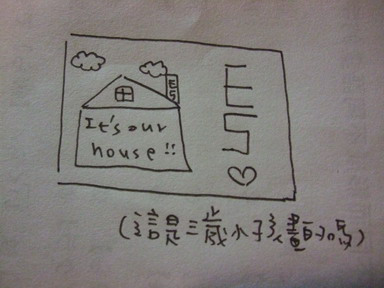 ES
It's our
house !!
E
S
(這是三歲小孩畫的嗎)